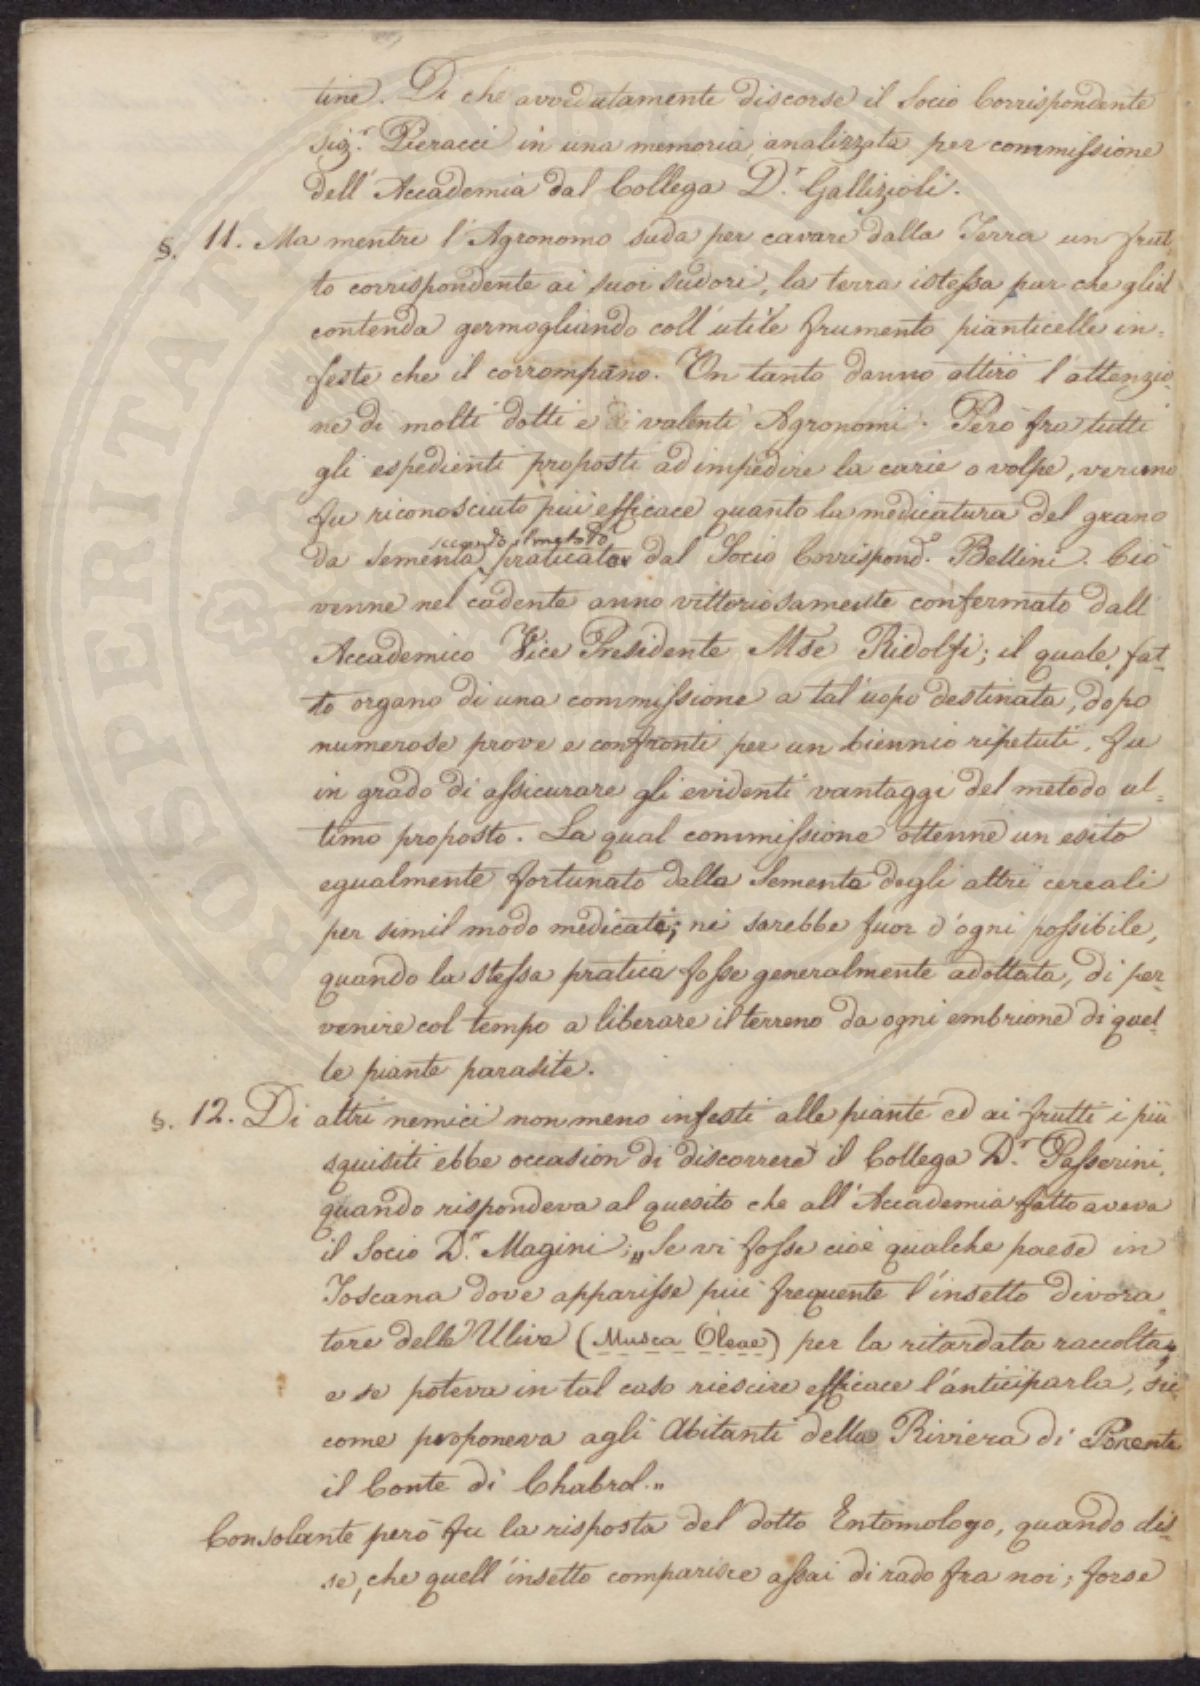 tine. Di che avvedutamente discorse il Socio Corrispondente
Sig.r Pieracci in una memoria analizzata per commissione
dell'Accademia dal Collega D.r Gallizioli.
§. 11. Ma mentre l'Agronomo suda per cavare dalla Terra un frut
to corrispondente ai suoi sudori, la terra istessa par che gliel
contenda germogliando coll'utile frumento pianticelle in=
feste che il corrompano. Un tanto danno attirò l'attenzio
ne di molti dotti e di valenti Agronomi. Però fra tutti
gli espedienti proposti ad impedire la carie o volpe, veruno
fu riconosciuto più efficace quanto la medicatura del grano
secondo il metodo
da sementa praticato dal Socio Corrispond. Bellini. Ciò
venne nel cadente anno vittoriosamente confermato dall'
Accademico Vice Presidente Mse Ridolfi; il quale, fat-
to organo di una commissione a tal'uopo destinata, dopo
numerose prove e confronti per un biennio ripetuti, fu
in grado di assicurare gli evidenti vantaggi del metodo ul=
timo proposto. La qual commissione ottenne un esito
egualmente fortunato dalla Sementa degli altri cereali
per simil modo medicati; nè sarebbe fuor d'ogni possibile,
quando la stessa pratica fosse generalmente adottata, di per
venire col tempo a liberare il terreno da ogni embrione di quel-
le piante parasite.
§. 12. Di altri nemici non meno infesti alle piante ed ai frutti i più
squisiti ebbe occasion di discorrere il Collega D.r Passerini,
quando rispondeva al quesito che all'Accademia fatto aveva
il Socio D.r Magini; „ Se vi fosse cioè qualche paese in
Toscana dove apparisse più frequente l'insetto divora
tore delle Ulive (Musca Oleae) per la ritardata raccolta,
e se poteva in tal caso riescire efficace l'anticiparla, sic
come proponeva agli Abitanti della Riviera di Ponente
il Conte di Chabrol. „
Consolante però fu la risposta del dotto Entomologo, quando dis-
se, che quell'insetto comparisce assai di rado fra noi; forse
PROSPERITATI